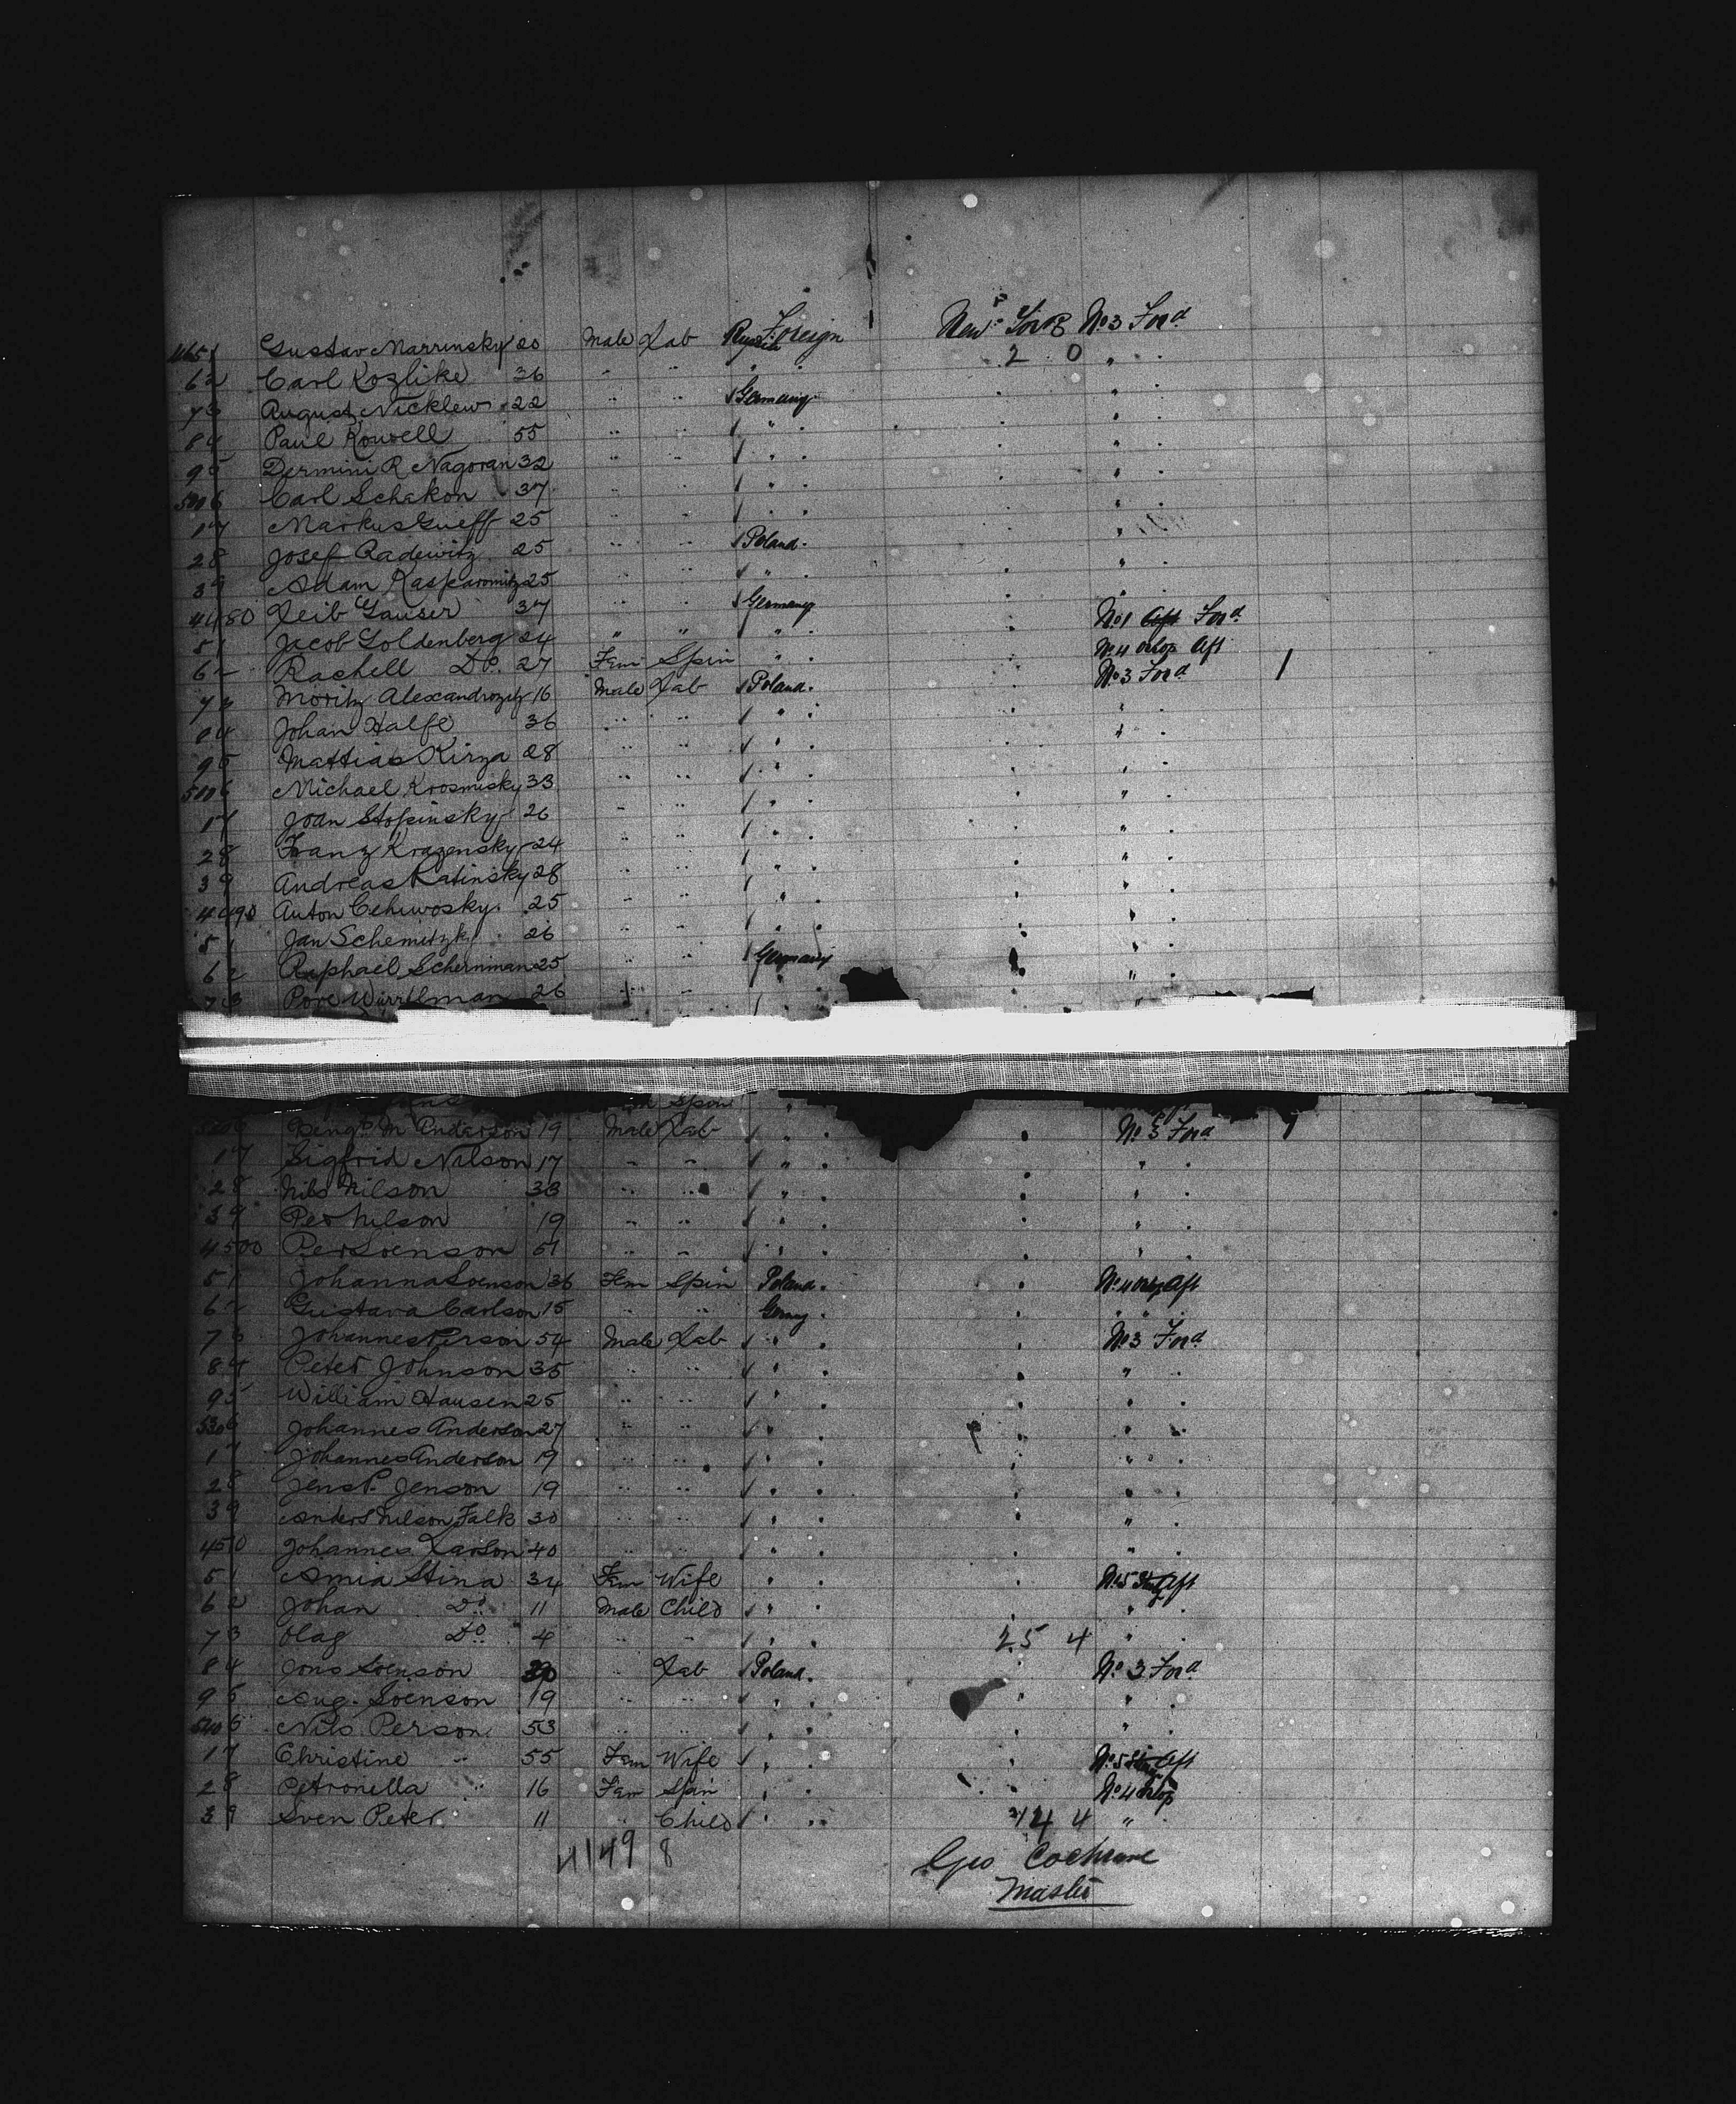 Foreign New York No 3 Ford
1 Gustav Marrinsky 20 Male Lab Russia 2 0 "
62 Carl Kozlike 36 " " " "
73 August Nicklew 22 " " Germany "
84 Paul Kowell 55 " " " "
95 Dermini R Nagoran 32 " " " "
6 Carl Schakon 37 " " " "
17 Markus Gueff 25 " " " "
28 Josef Radewitz 25 " " Poland "
39 Adam Kasparomitz 25 " " " "
4480 Leib Gauser 37 " " Germany No 1 Aft Ford
51 Jacob Goldenberg 24 " " " No 4 Orlop Aft
62 Rachell Do. 27 Fem Spin " No 3 Ford 1
73 Moritz Alexandrozitz 16 Male Lab Poland "
84 Johan Halfe 36 " " " "
95 Mattias Kirza 28 " " " "
6 Michael Krosmisky 33 " " " "
17 Joan Stopinsky 26 " " " "
28 Franz Krazensky 24 " " " "
39 Andreas Ratinsky 28 " " " "
4490 Anton Cehiwosky 25 " " " "
51 Jan Schemitzk 26 " " " "
62 Raphael Scherniman 25 " " Germany "
73 Pore Würrtlman 26 " " "
Spin "
Beng M Anderson 19 Male Lab " No 3 Ford 1
17 Sigfrid Nilson 17 " " " "
28 Nils Nilson 38 " " " "
39 Per Nilson 19 " " " "
4500 Per Svenson 51 " " " "
51 Johanna Svenson 36 Fem Spin Poland No 4 Orlop Aft
62 Gustava Carlson 15 " " Germy " "
73 Johannes Person 54 Male Lab " No 3 Ford
84 Peter Johnson 35 " " " "
95 William Hausen 25 " " " "
6 Johannes Anderson 27 " " " "
17 Johannes Anderson 19 " " " "
28 Jens P. Jenson 19 " " " "
39 Anders Nilson Falk 30 " " " "
4510 Johannes Larson 40 " " " "
51 Amia Stina 34 Fem Wife " No 5 Aft
62 Johan Do. 11 Male Child " "
73 Olag Do 4 " " " 25 4 "
84 Jons Svenson Lab Poland No 3 Ford
95 Aug. Svenson 19 " " " "
6 Nils Person 53 " " " "
17 Christine " 55 Fem Wife " No 5 Aft
28 Petronella " 16 Fem Spin " No 4 Orlop
39 Sven Peter 11 " Child " 44 4 "
4149 8
Geo Cochrane
Master